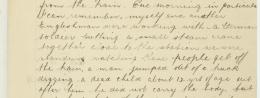 from the train. One morning in particular
I can remember, myself and another
Englishman were working with a German
soldier putting a small steam crane
together close to the station we were
standing watching these people get off
the train, a man jumped out of a truck
dragging a dead child about 12 yrs of age out
after him he did not carry the body but